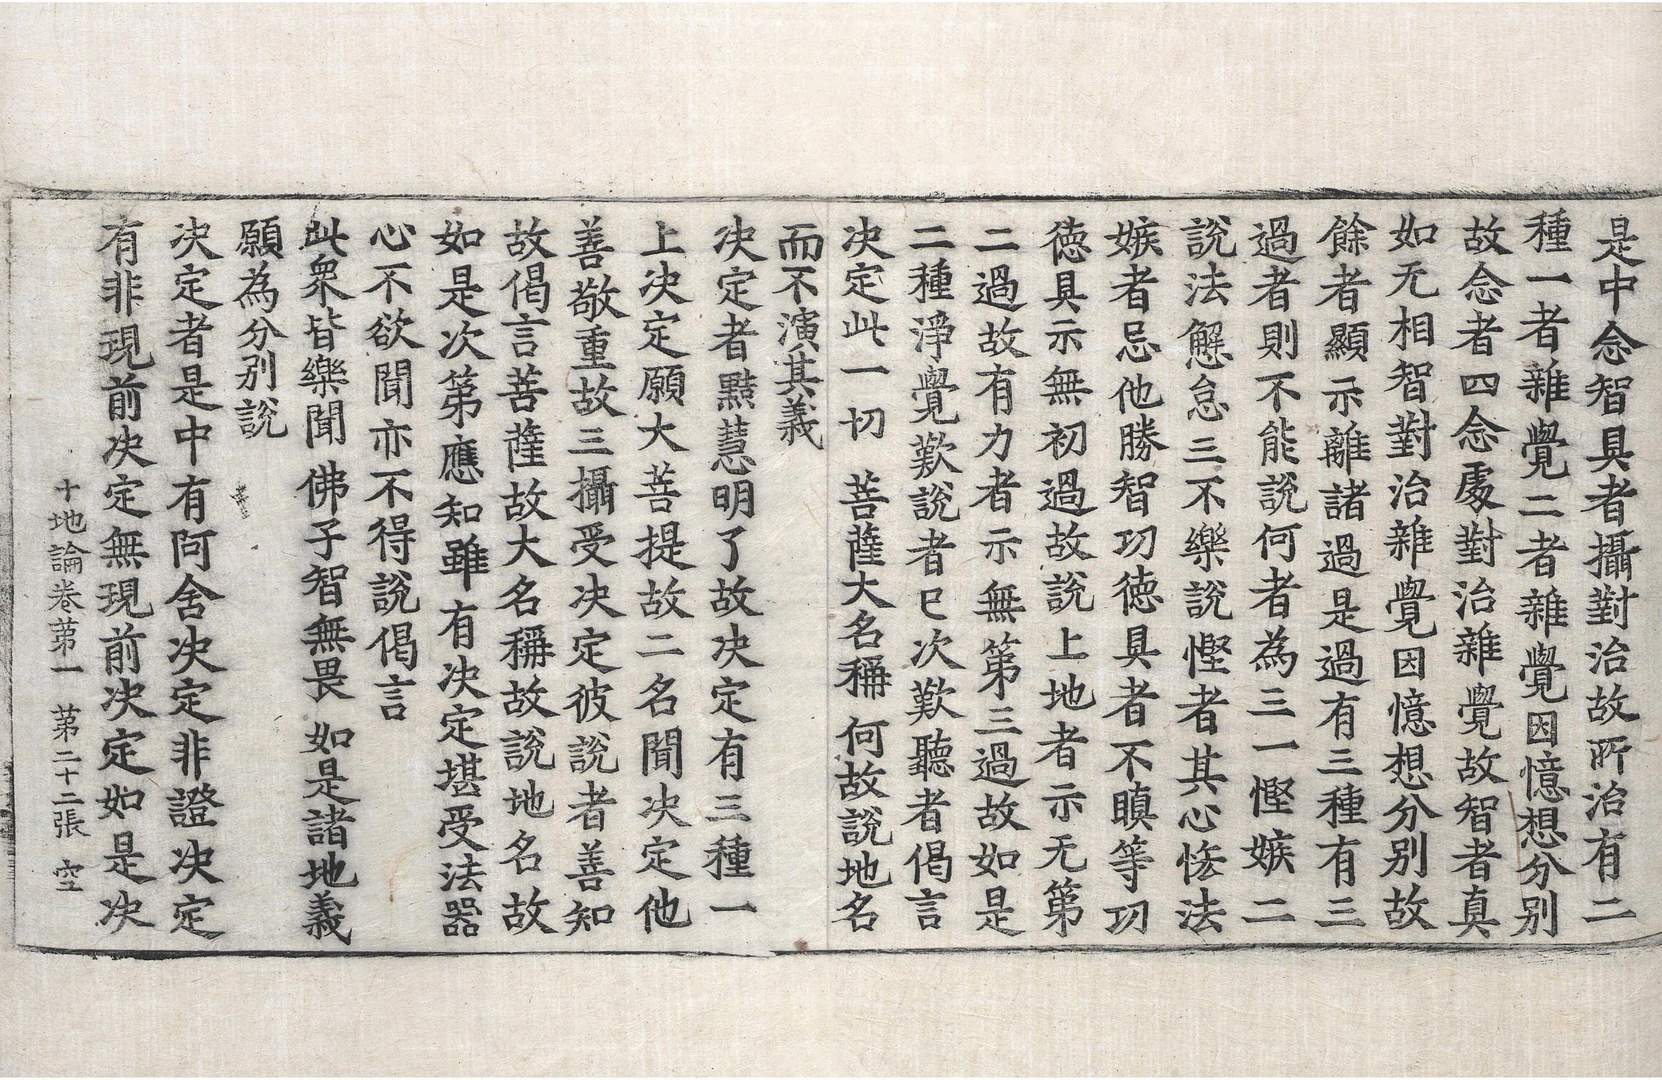 是中念智具者攝對治故所治有二
種一者雜覺二者雜覺因憶想分別
故念者四念處對治雜覺故智者真
如无相智對治雜覺因憶想分別故
餘者顯示離諸過是過有三種有三
過者則不能說何者為三一慳嫉二
說法懈怠三不樂說慳者其心悋法
嫉者忌他勝智功德具者不瞋等功
德具示無初過故說上地者示无第
二過故有力者示無第三過故如是
二種淨覺歎說者已次歎聽者偈言
決定此一切 菩薩大名稱 何故說地名
而不演其義
決定者黠慧明了故決定有三種一
上決定願大菩提故二名聞決定他
善敬重故三攝受決定彼說者善知
故偈言菩薩故大名稱故說地名故
如是次第應知雖有決定堪受法器
心不欲聞亦不得說偈言
此眾皆樂聞 佛子智無畏 如是諸地義
願為分別說
決定者是中有阿含決定非證決定
有非現前決定無現前決定如是決
十地論卷第一 第二十二張 空